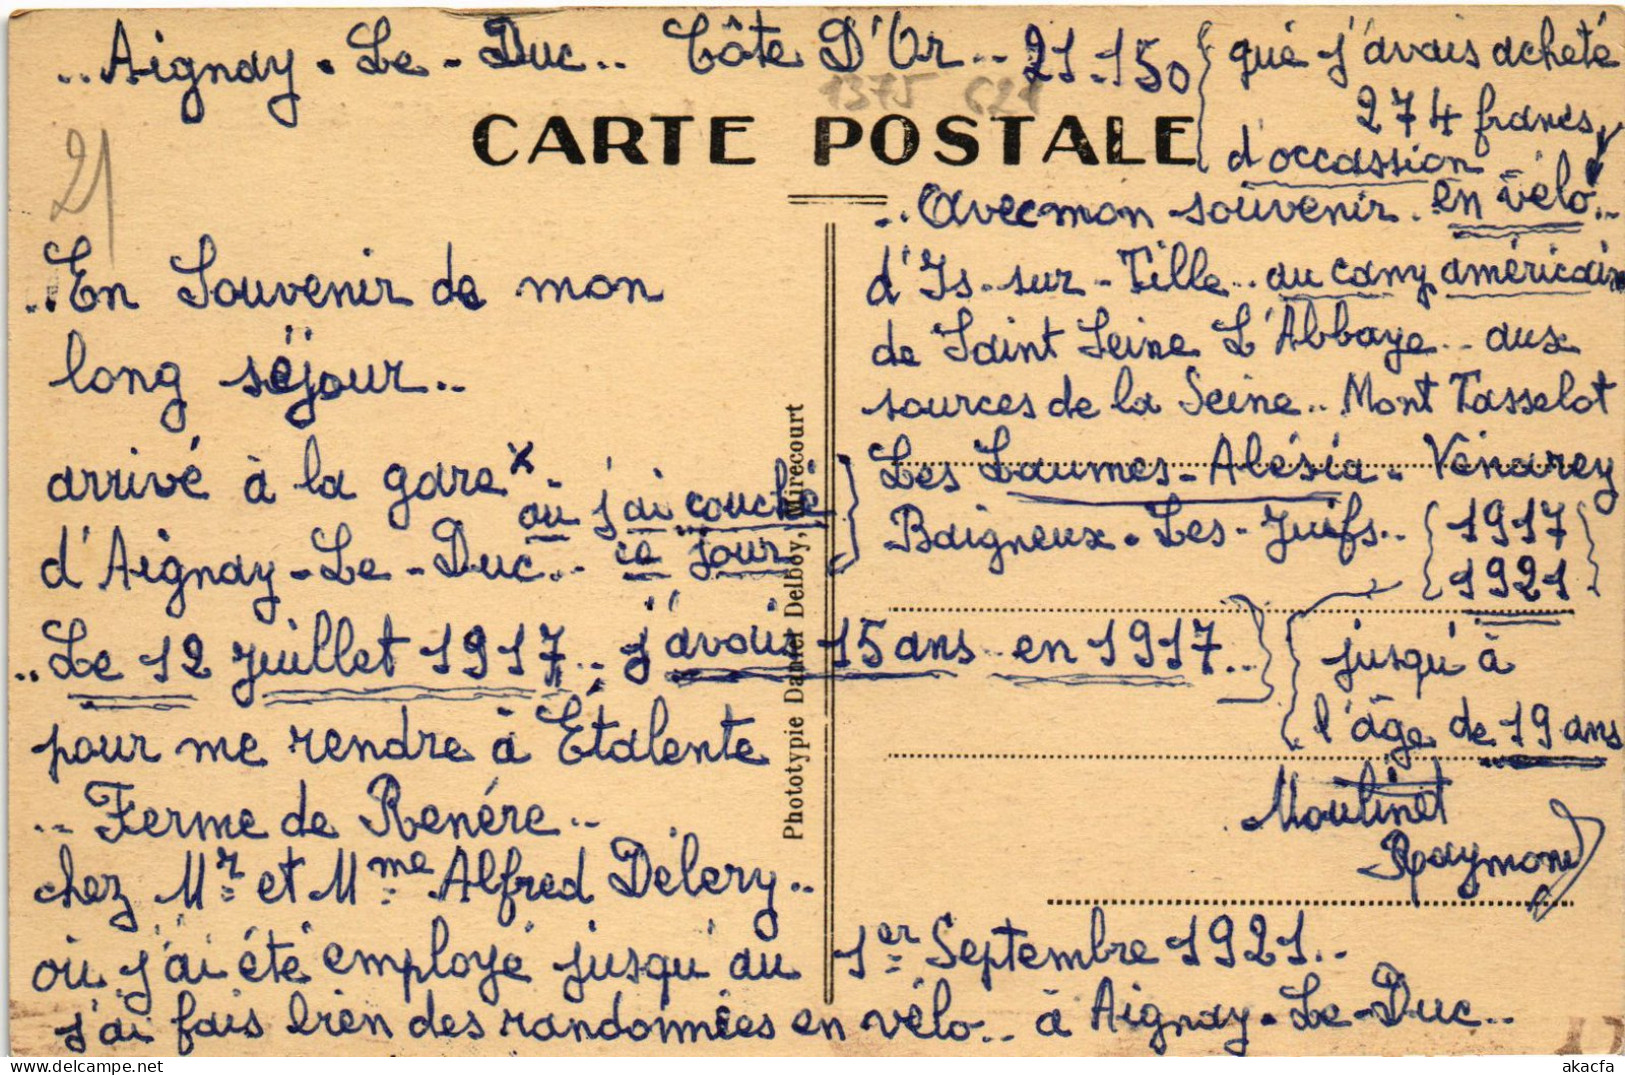 .. Aignay - Le - Duc .. Côte D'Or .. 21 - 150
1375 621
CARTE POSTALE
21
.. En Souvenir de mon
long séjour ..
arrivé à la gare x où j'ai couché
ce jour
d'Aignay - Le - Duc ..
.. Le 12 juillet 1917 .. j'avais 15 ans en 1917 ..
pour me rendre à Étalente
.. Ferme de Renére ..
chez Mr et Mme Alfred Délery ..
où j'ai été employé jusqu'au 1er Septembre 1921 ..
j'ai fais bien des randonnées en vélo .. à Aignay - Le - Duc ..
que j'avais acheté
274 francs
d'occassion
.. Avec mon souvenir en vélo ..
d'Is - sur - Tille .. au camp américain
de Saint Seine L'Abbaye .. aux
sources de la Seine .. Mont Tasselot
Les Laumes - Alésia - Vénarey
Baigneux - Les - Juifs .. 1917
1921
jusqu'à
l'âge de 19 ans
Moulinet
Raymond
Phototypie Daniel Delboy, Mirecourt
akacfa